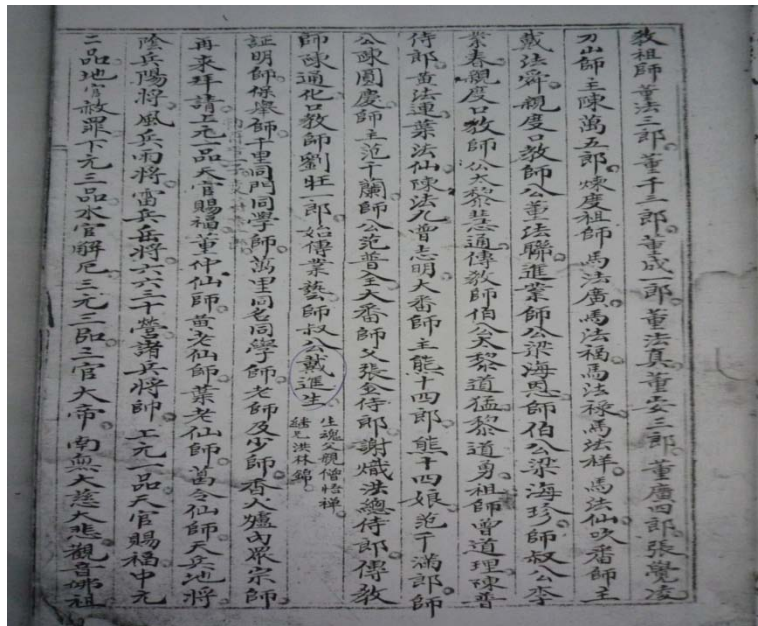 教祖師董法三郎董千三郎董成一郎董法真董安三郎董廣四郎張覺凌
刀山師主陳萬五郎煉度祖師馬法廣馬法福馬法祿馬法祥馬法仙吹番師主
戴法舜親度口教師公董法聯進業師公梁海恩師伯公梁海珍師叔公李
業春親度口教師公太黎慧通傳教師伯公太黎道猛黎道勇祖師曾道理陳普
侍郎黃法運葉法仙陳法九曾志明大番師主熊十四郎熊十四娘范千滿郎師
公陳圓慶師主范千蘭師公范普全大番師父張全侍郎謝熾洪總侍郎傳教
師陳通化口教師劉狂一郎始傳業藝師叔公戴進生
生魂父親僧悟禅
繼兄洪林錦
証明師保舉師千里同門同學師萬里同名同學師老師及少師香火爐內眾宗師
再來拜請上元一品天官賜福董仲仙師黃老仙師葉老仙師葛令仙師天兵地將
陰兵陽將風兵雨將雷兵岳將六六三十營諸兵將帥上元一品天官賜福中元
二品地官赦罪下元三品水官解厄三元三品三官大帝南無大慈大悲觀音娘祖